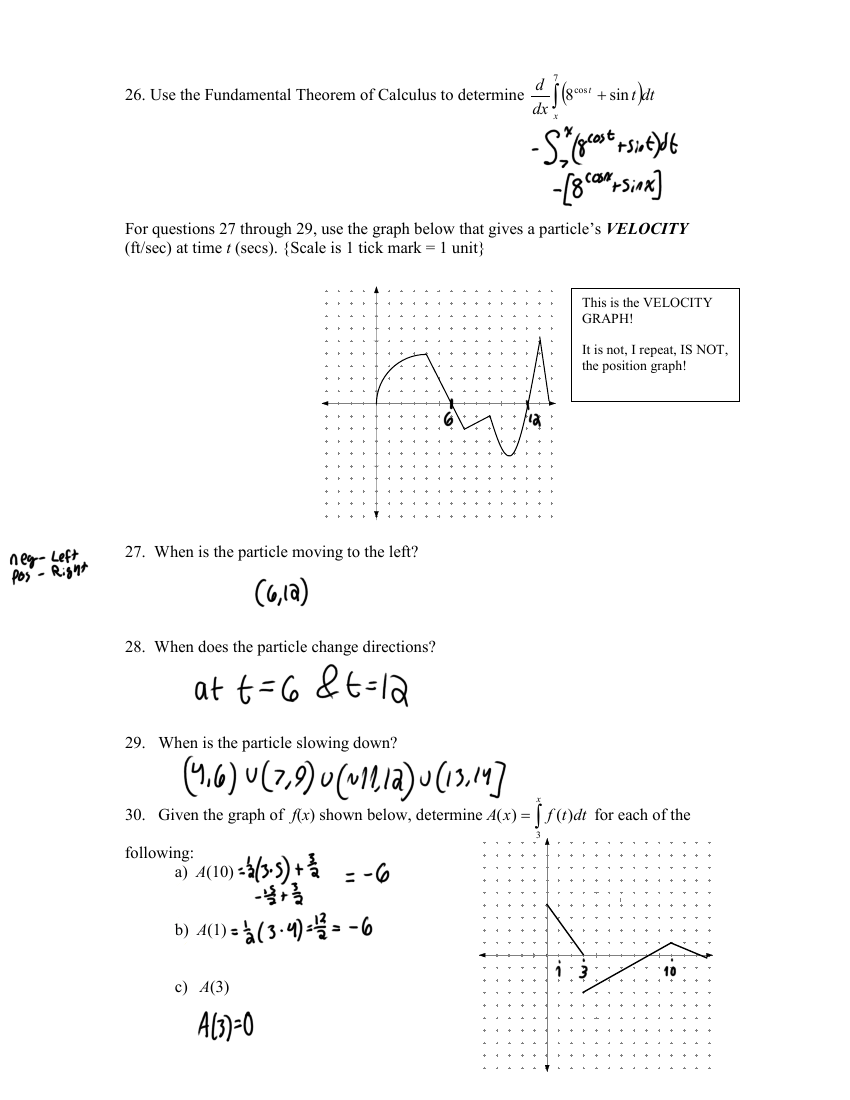 26. Use the Fundamental Theorem of Calculus to determine d/dx ∫_x^7 (8^{cos t} + sin t)dt
-∫_7^x (8^{cost} + sint)dt
-[8^{cosx} + sinx]
For questions 27 through 29, use the graph below that gives a particle's VELOCITY
(ft/sec) at time t (secs). {Scale is 1 tick mark = 1 unit}
This is the VELOCITY
GRAPH!
It is not, I repeat, IS NOT,
the position graph!
6
12
neg - Left
pos - Right
27. When is the particle moving to the left?
(6,12)
28. When does the particle change directions?
at t=6 & t=12
29. When is the particle slowing down?
(4,6) ∪ (7,9) ∪ (~11,12) ∪ (13,14]
30. Given the graph of f(x) shown below, determine A(x) = ∫_3^x f(t)dt for each of the
following:
a) A(10) = 1/2(3·5) + 3/2 = -6
-15/2 + 3/2
b) A(1) = 1/2(3·4) = 12/2 = -6
c) A(3)
A(3)=0
1 3 10